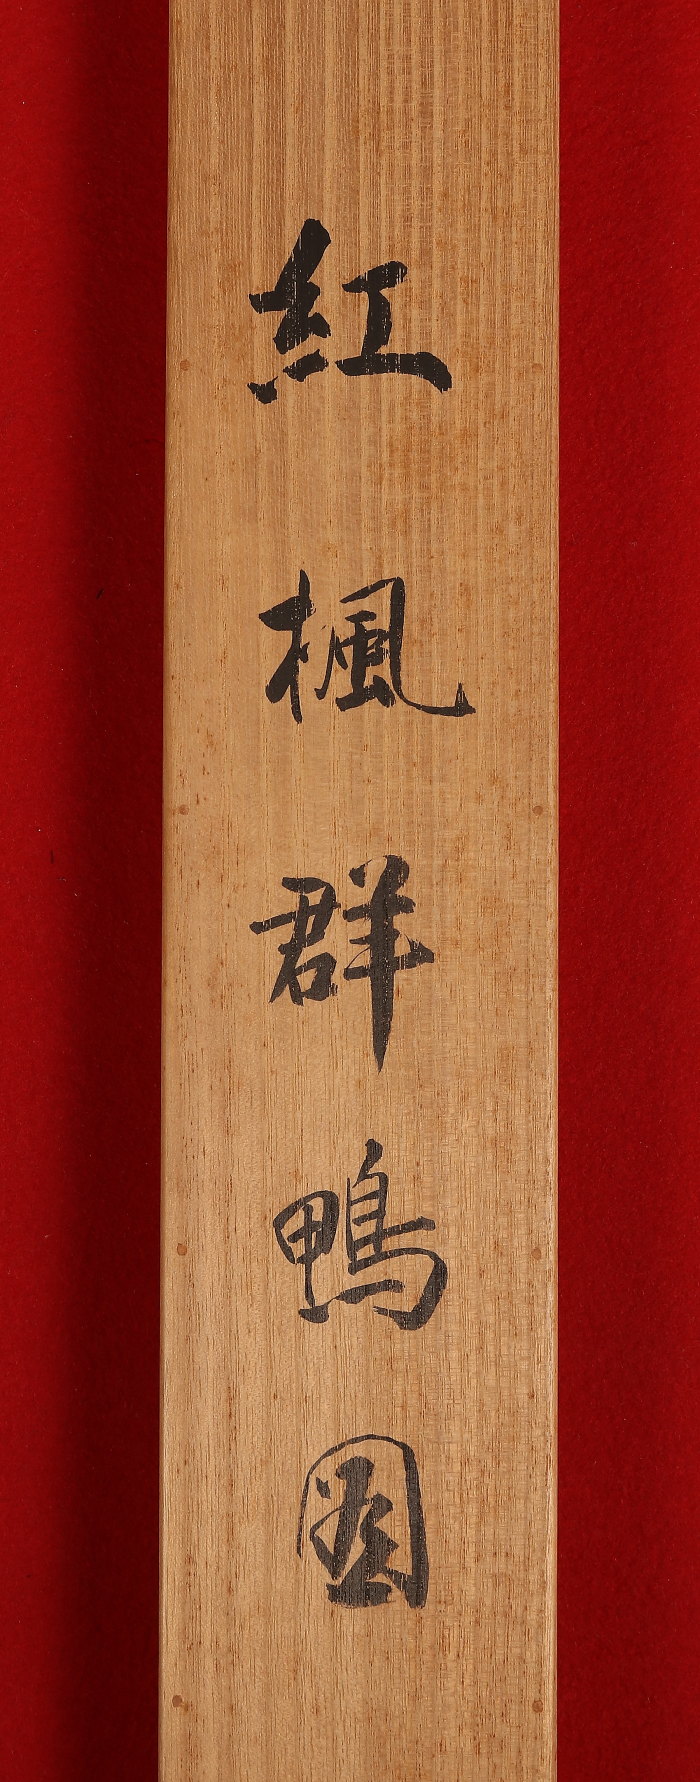 紅楓群鴨図